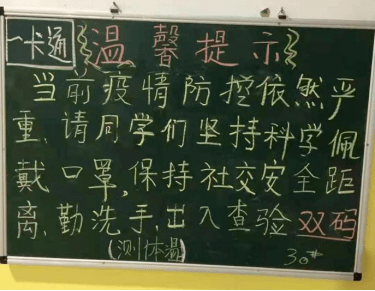 一卡通 温馨提示
当前疫情防控依然严
重,请同学们坚持科学佩
戴口罩,保持社交安全距
离、勤洗手,出入查验双码
(测体温) 30#